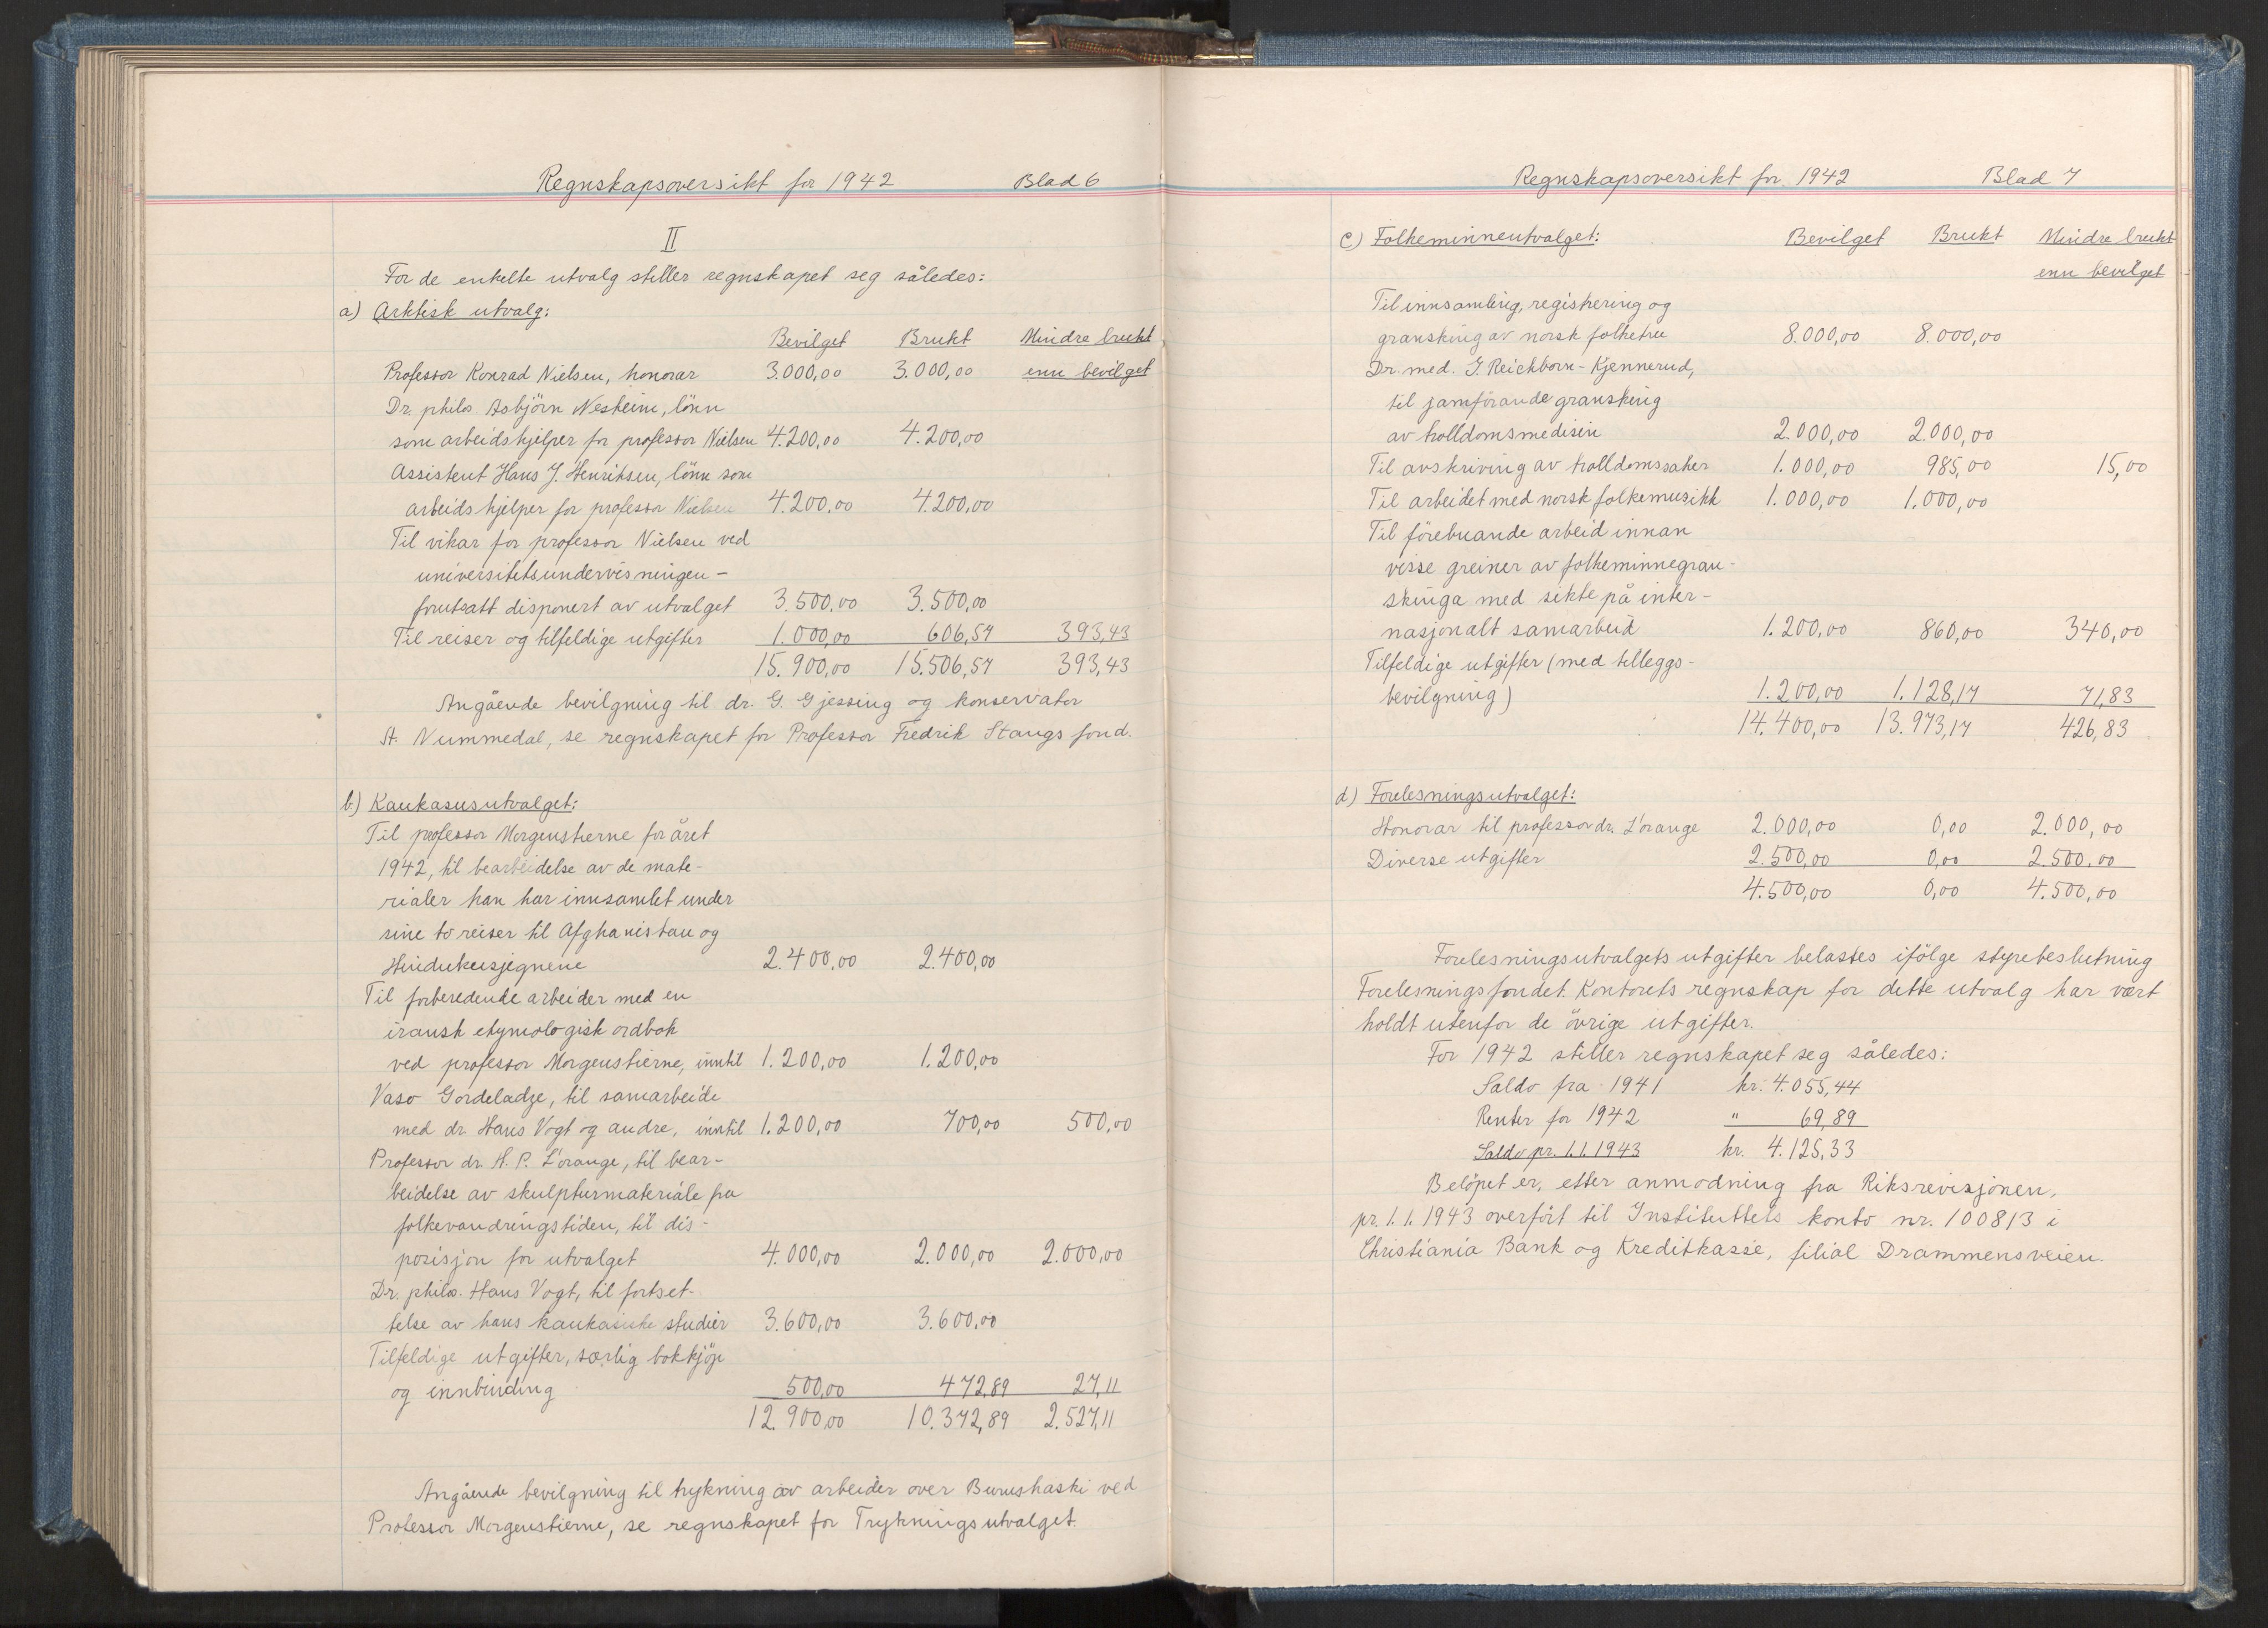 Regnskapsoversikt for 1942 Blad 6
II
For de enkelte utvalg stiller regnskapet seg således:
a) Arktisk utvalg:
Bevilget Brukt Mindre brukt
Professor Konrad Nielsen, honorar 3.000,00 3.000,00 enn bevilget
Dr. philos. Asbjörn Nesheim, lönn
som arbeidshjelper for professor Nielsen 4.200,00 4.200,00
Assistent Hans J. Henriksen, lönn som
arbeidshjelper for professor Nielsen 4.200,00 4.200,00
Til vikar for professor Nielsen ved
universitetsundervisningen -
forutsatt disponert av utvalget 3.500,00 3.500,00
Til reiser og tilfeldige utgifter 1.000,00 606,57 393,43
15.900,00 15.506,57 393,43
Angående bevilgning til dr. G. Gjessing og konservator
A. Nummedal, se regnskapet for Professor Fredrik Stangs fond.
b.) Kaukasusutvalget:
Til professor Morgenstierne for året
1942, til bearbeidelse av de mate-
rialer han har innsamlet under
sine to reiser til Afghanistan og
Hindukusjegnene 2.400,00 2.400,00
Til forberedende arbeider med en
iransk etymologisk ordbok
ved professor Morgenstierne, inntil 1.200,00 1.200,00
Vaso Gordeladze, til samarbeide
med dr. Hans Vogt og andre, inntil 1.200,00 700,00 500,00
Professor dr. H. P. L'orange, til bear-
beidelse av skulpturmateriale fra
folkevandringstiden, til dis-
posisjon for utvalget 4.000,00 2.000,00 2.000,00
Dr. philos. Hans Vogt, til fortset-
telse av hans kaukasiske studier 3.600,00 3.600,00
Tilfeldige utgifter, særlig bokkjöp
og innbinding 500,00 472,89 27,11
12.900,00 10.372,89 2.527,11
Angående bevilgning til trykning av arbeider over Burushaski ved
Professor Morgenstierne, se regnskapet for Trykningsutvalget.
Regnskapsoversikt for 1942 Blad 7
c) Folkeminneutvalget: Bevilget Brukt Mindre brukt
enn bevilget
Til innsamling, registrering og
gransking av norsk folketru 8.000,00 8.000,00
Dr. med. I. Reichborn-Kjennerud,
til jamförande gransking
av trolldomsmedisin 2.000,00 2.000,00
Til avskriving av trolldomssaker 1.000,00 985,00 15,00
Til arbeidet med norsk folkemusikk 1.000,00 1.000,00
Til förebuande arbeid innan
visse greiner av folkeminnegran-
skinga med sikte på inter-
nasjonalt samarbeid 1.200,00 860,00 340,00
Tilfeldige utgifter (med tilleggs-
bevilgning) 1.200,00 1.128,17 71,83
14.400,00 13.973,17 426,83
d) Forelesningsutvalget:
Honorar til professor dr. L'orange 2.000,00 0,00 2.000,00
Diverse utgifter 2.500,00 0,00 2.500,00
4.500,00 0,00 4.500,00
Forelesningsutvalgets utgifter belastes ifölge styrebeslutning
Forelesningsfondet. Kontorets regnskap for dette utvalg har vært
holdt utenfor de övrige utgifter.
For 1942 stiller regnskapet seg således:
Saldo fra 1941 kr. 4.055,44
Renter for 1942 " 69,89
Saldo pr. 1.1.1943 kr. 4.125,33
Belöpet er, etter anmodning fra Riksrevisjonen,
pr. 1.1.1943 overfört til Instituttets konto nr. 100813 i
Christiania Bank og Kreditkasse, filial Drammensveien.